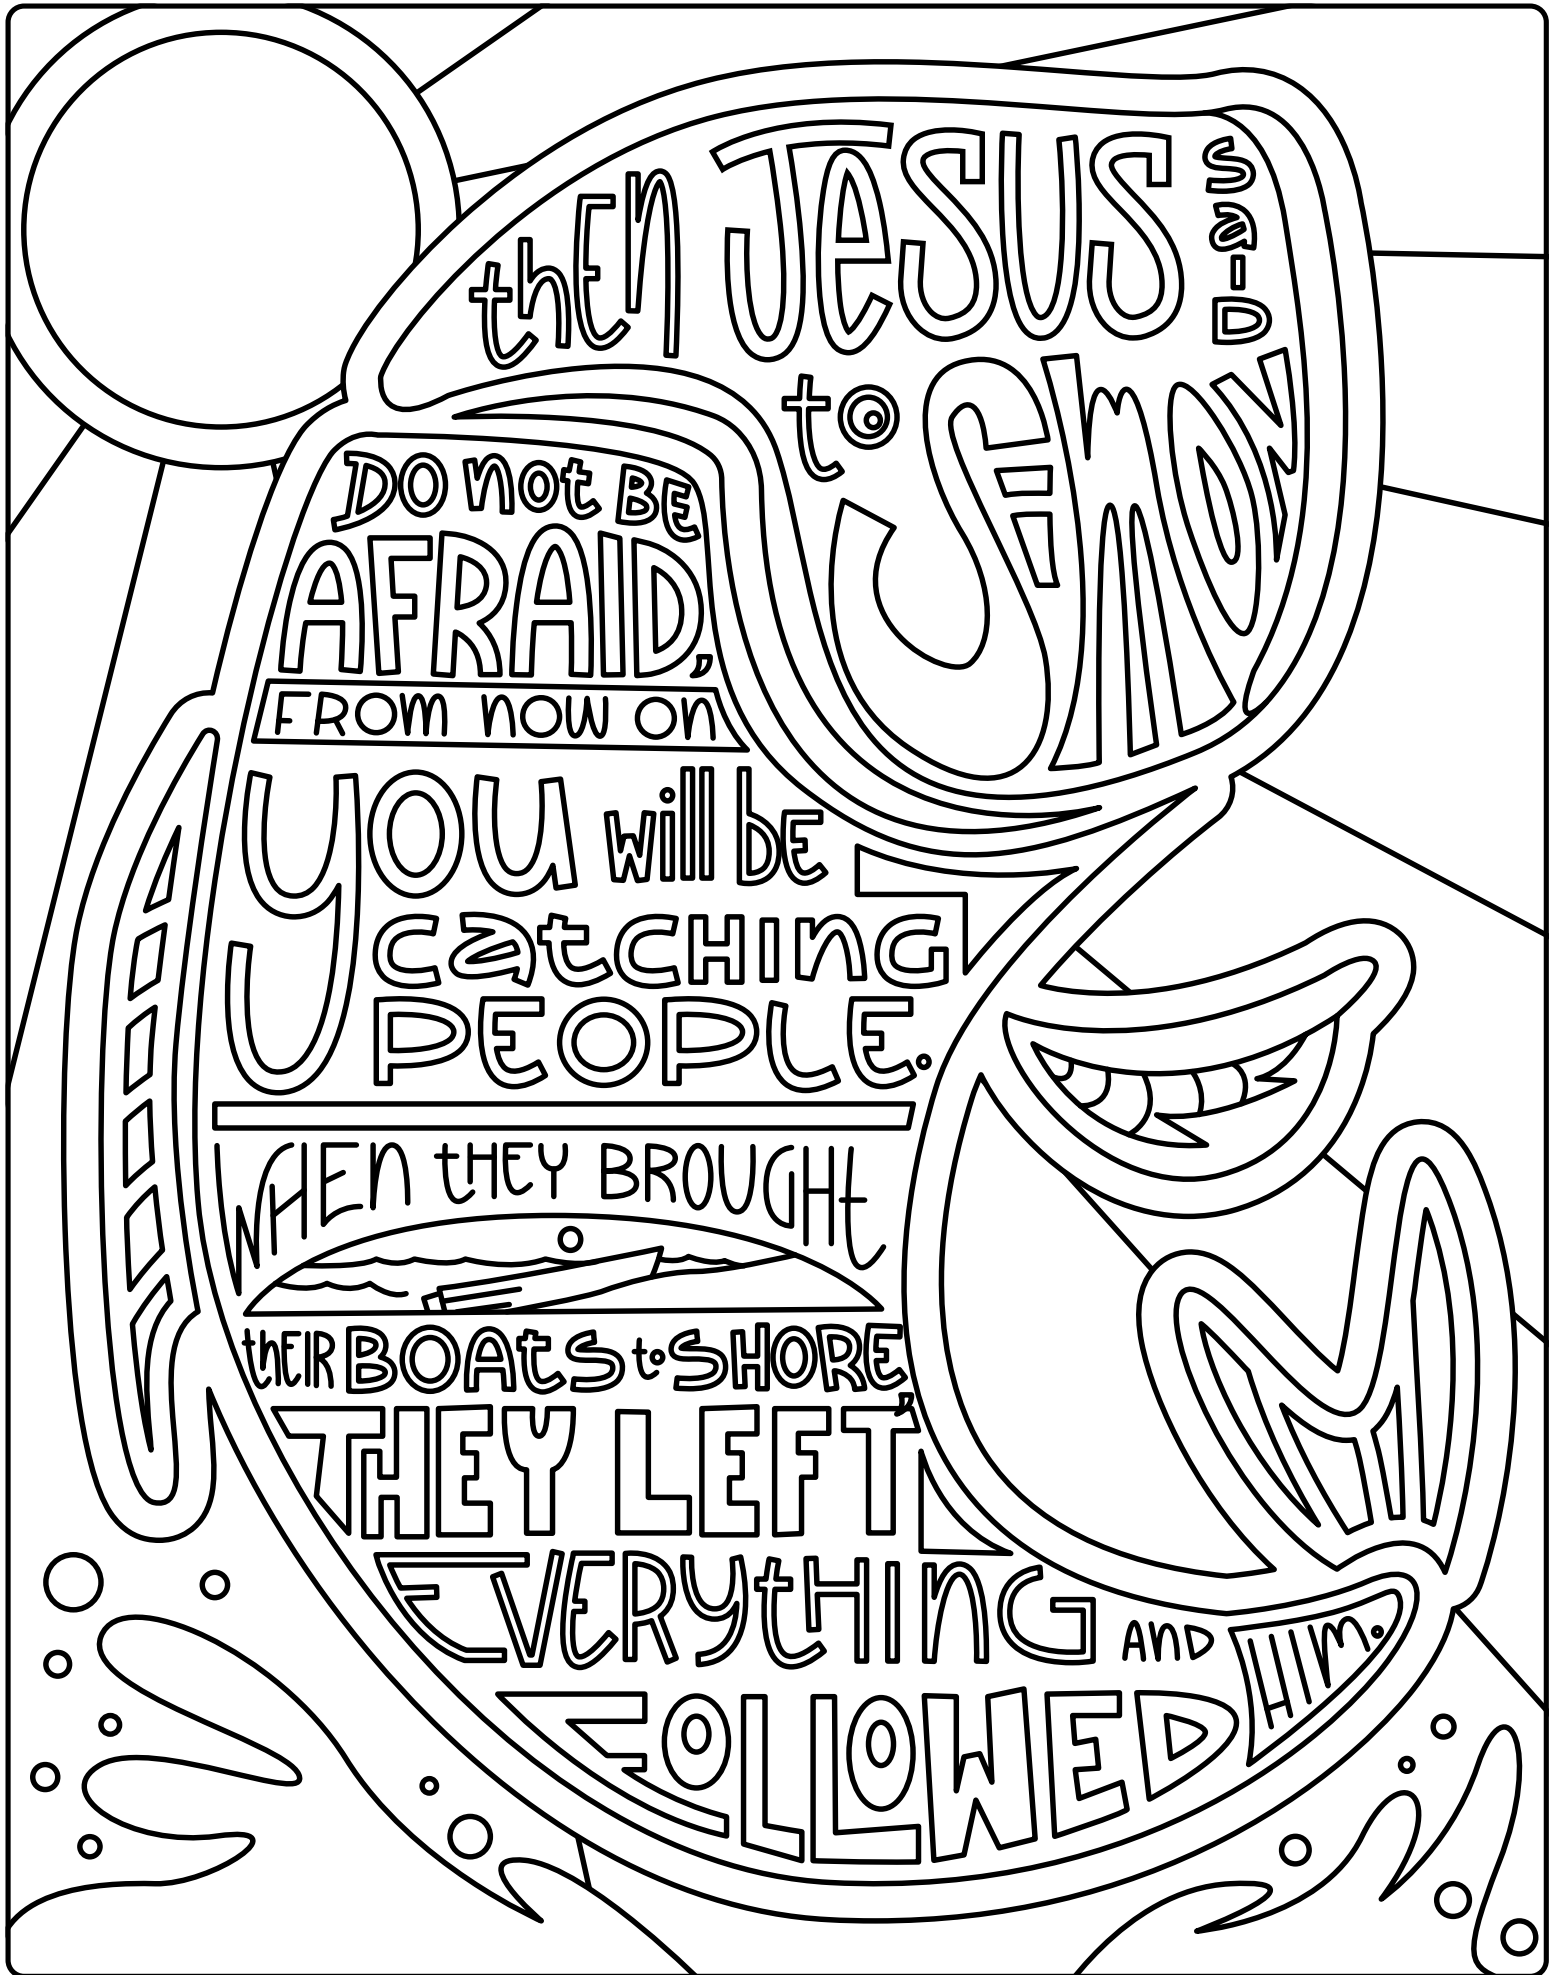 then JESUS saiD
to SimON
DO not BE
AFRAID,
FROM NOW ON
YOU will bE
catCHING
PEOPLE.
WHEN tHEY BROUGHt
thEIR BOAtS to SHORE,
THEY LEFT
EVERYtHING AND HIM.
FOLLOWED